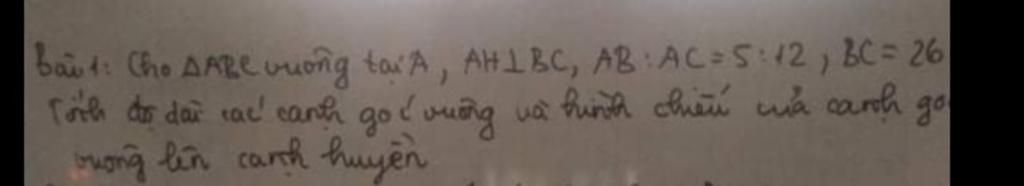 Bài 1: Cho ΔABC vuông tại A, AH⊥BC, AB:AC=5:12, BC=26
Tính độ dài các cạnh góc vuông và hình chiếu của cạnh gó
vuông lên cạnh huyền